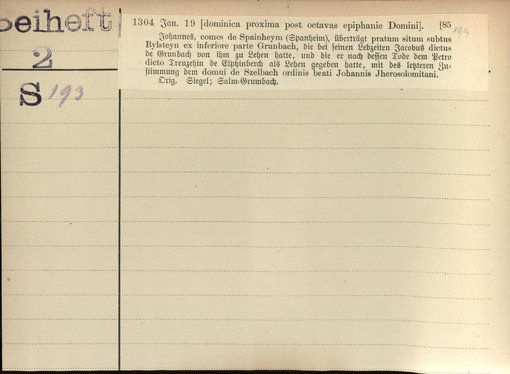 Beiheft
2
S 193
1304 Jan. 19 [dominica proxima post octavas epiphanie Domini]. [85
193
Johannes, comes de Spainheym (Spanheim), überträgt pratum situm subtus
Bylsteyn ex inferiore parte Grunbach, die bei seinen Lebzeiten Jacobus dictus
de Grunbach von ihm zu Lehen hatte, und die er nach dessen Tode dem Petro
dicto Treuzehin de Elphinberch als Lehen gegeben hatte, mit des letzteren Zu-
stimmung dem domui de Szelbach ordinis beati Johannis Jherosolomitani.
Orig. Siegel; Salm-Grumbach.